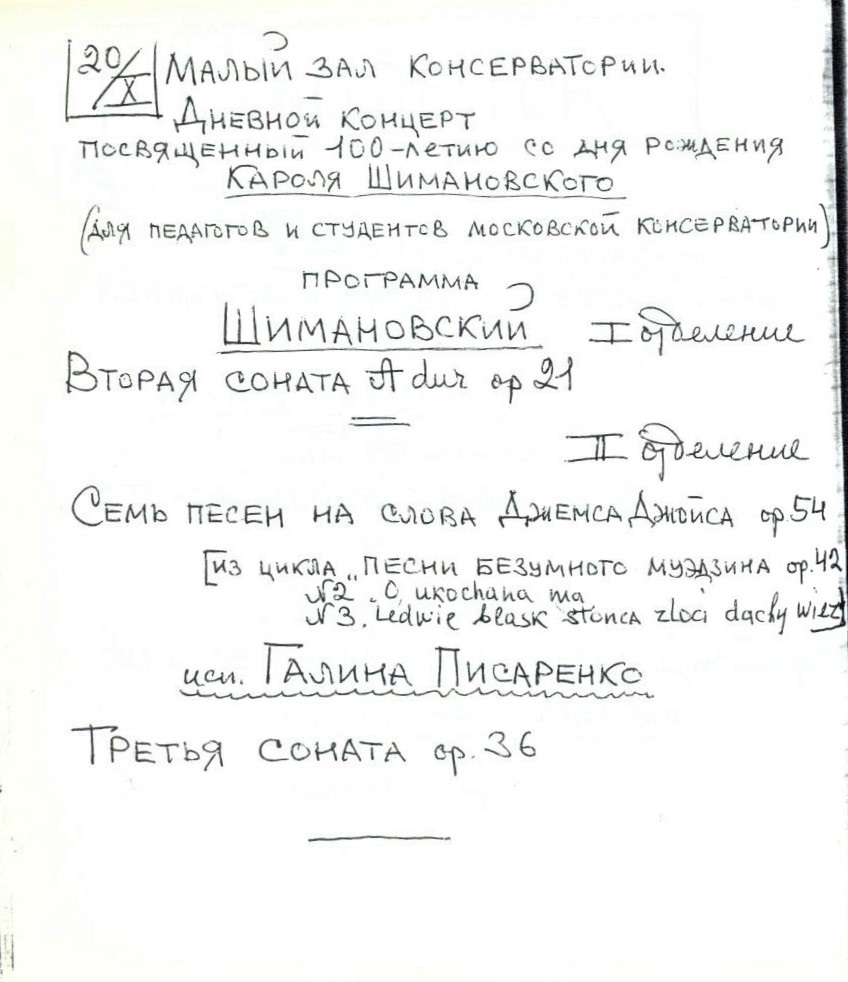 20/X МАЛЫЙ ЗАЛ КОНСЕРВАТОРИИ.
ДНЕВНОЙ КОНЦЕРТ
ПОСВЯЩЕННЫЙ 100-ЛЕТИЮ СО ДНЯ РОЖДЕНИЯ
КАРОЛЯ ШИМАНОВСКОГО
(ДЛЯ ПЕДАГОГОВ И СТУДЕНТОВ МОСКОВСКОЙ КОНСЕРВАТОРИИ)
ПРОГРАММА
ШИМАНОВСКИЙ I отделение
ВТОРАЯ СОНАТА A dur op 21
II отделение
СЕМЬ ПЕСЕН НА СЛОВА ДЖЕМСА ДЖОЙСА op. 54
[ИЗ ЦИКЛА „ПЕСНИ БЕЗУМНОГО МУЭДЗИНА op. 42
N2. O, ukochana ma
N3. Ledwie blask stonca zloci dachy wiez]
исп. ГАЛИНА ПИСАРЕНКО
ТРЕТЬЯ СОНАТА op. 36